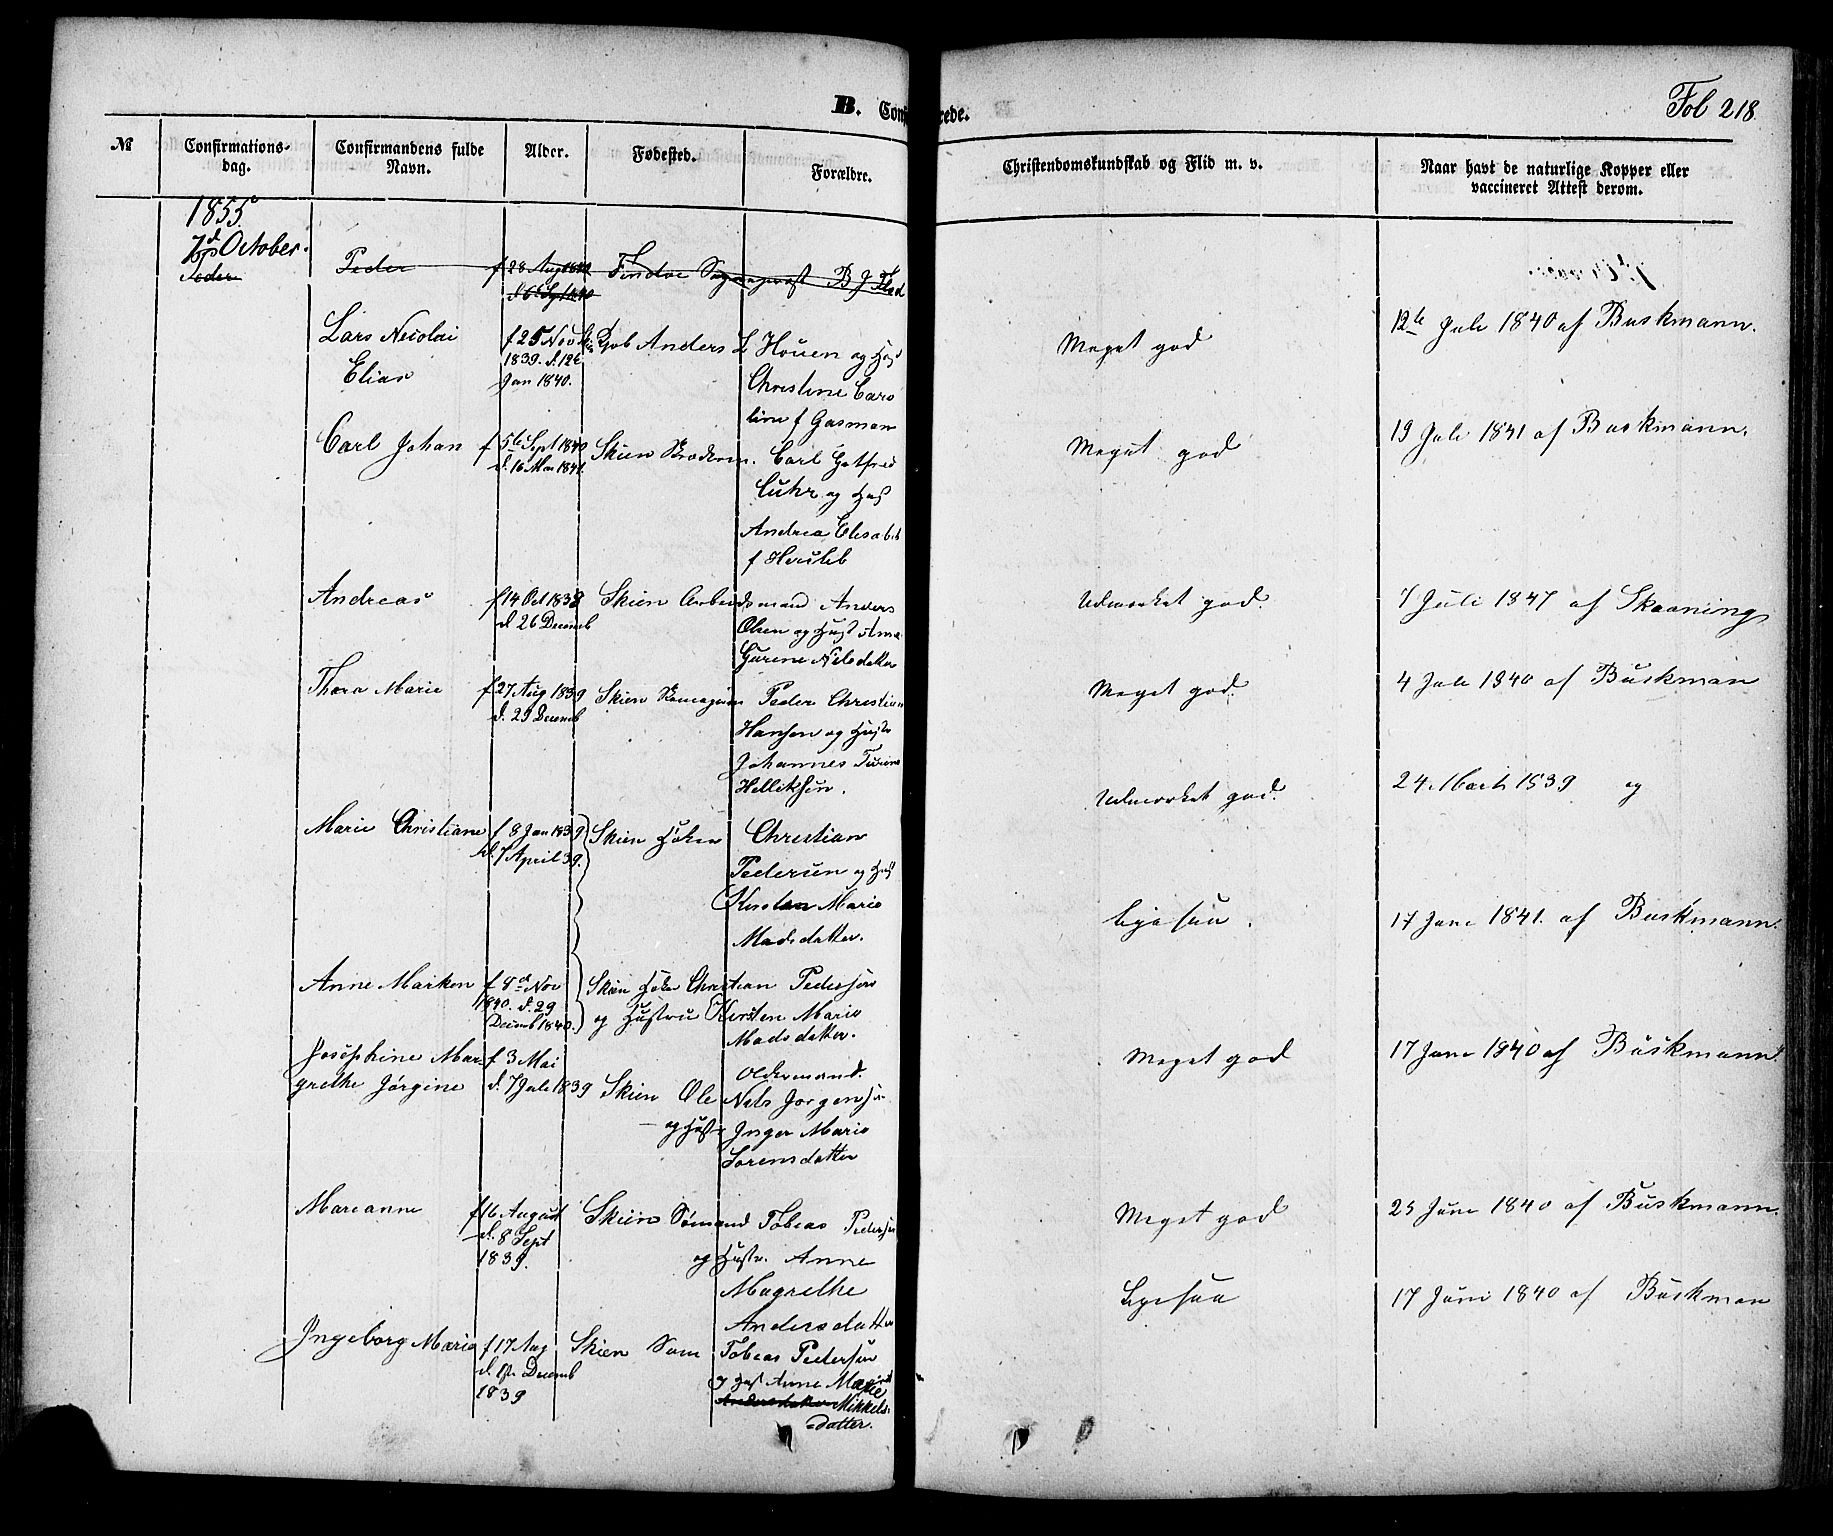 B. Conf rede.
Fol 218
№
Confirmations-
dag.
Confirmandens fulde
Navn.
Alder.
Fødested.
Forældre.
Christendomskundskab og Flid m. v.
Naar havt de naturlige Kopper eller
vaccineret Attest derom.
1855
7d October.
Peder
Peder f 28 Aug 1840 Findoe Sogneprest B J Flod
d 6 Sept 1840
Lars Nicolai f 25 Nov Anders L Houen og Hust
1839. d. 12t
Elias Jan 1840. Christine Caro
line f Gasman
Meget god
12te Juli 1840 af Buskmann.
Carl Johan f 5te Sept 1840 Skien Carl Gotfred
d. 16 Mar 1841.
Luhr og Hust
Andrea Elisabeth
f Heusleb
Meget god
19 Juli 1841 af Buskmann.
Andreas f 14 Oct 1838 Skien Arbeidsmand Anders
d 26 Decemb
Olsen og Hust Anne
Gurine Nilsdatter
Udmærket god.
7 Juli 1847 af Skaaning
Thora Marie f 27 Aug 1839 Skien Peder Christian
d. 29 Decemb
Hansen og Hustr
Johannes
Helliksen.
Meget god.
4 Juli 1840 af Buskman
Marie Christiane f 8 Jan 1839 Skien Høker Christian
d. 7 April 39.
Pedersen og Hust
Kirsten Marie
Madsdatter.
Udmærket god.
24 Marts 1839 og
Anne Marken f 8d Nov Skien Høker Christian Pedersen
1840. d. 29
Decemb 1840. og Hustru Kirsten Marie
Madsdatter.
Ligesaa.
17 Juni 1841. af Buskmann.
Josephine Mar f 3 Mai
grethe Jørgine d. 7 Juli 1839 Skien
Oldermand.
Ole Nils Jørgensen
og Hust Inger Marie
Sorensdatter
Meget god
17 Juni 1840 af Buskmann.
Marianne f 16 August Skien Sømand Tobias Pedersen
d. 8 Sept
1839. og Hustr. Anne
Magrethe
Andersdatter
Meget god
25 Juni 1840 af Buskmann.
Ingeborg Marie f 17 Aug Skien Søm Tobias Pedersen
d. 1ste Decemb
1839
og Hust Anne Marie
Andersdatter Mikkels-
datter.
Ligesaa
17 Juni 1840 af Buskman